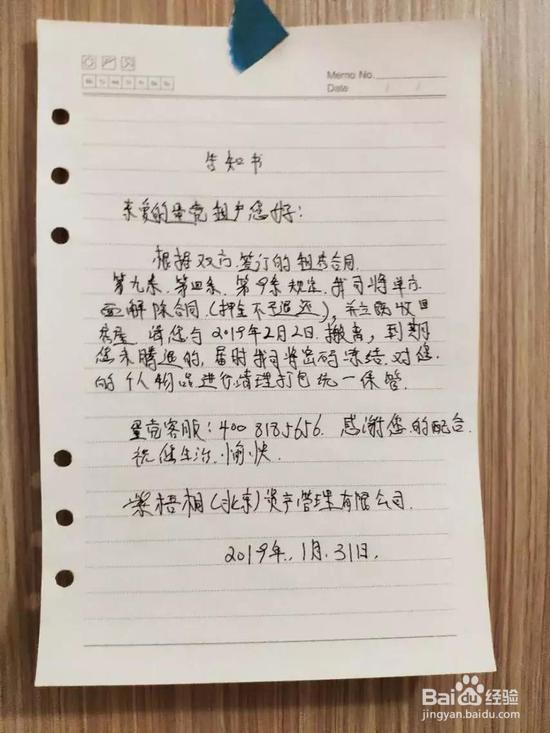 Memo No.
Date / /
Mo Tu We Th Fr Sa Su
告知书
亲爱的蛋壳租户您好:
根据双方签订的租房合同
第九条.第四条.第9条规定.我司将单方
面解除合同.(押金不予退还),并立即收回
房屋 请您与2019年2月2日.搬离,到期
您未腾退的,届时我司将密码冻结.对您
的个人物品进行清理打包统一保管.
蛋壳客服:400 8185656. 感谢您的配合.
祝您生活.愉快.
紫梧桐(北京)资产管理有限公司.
2019年.1月.31日.
Baidu经验
jingyan.baidu.com